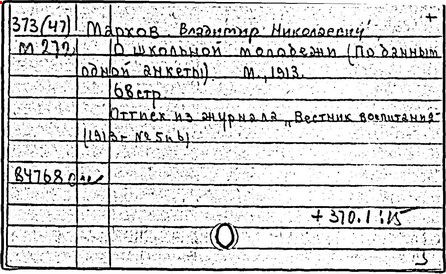 +
373(47) Марков Владимир Николаевич
М 272. О школьной молодежи (По данным
одной анкеты). М., 1913.
68 стр
Оттиск из журнала „Вестник воспитания"
(1913 г № 5 и 6)
84768
+ 370.1:15